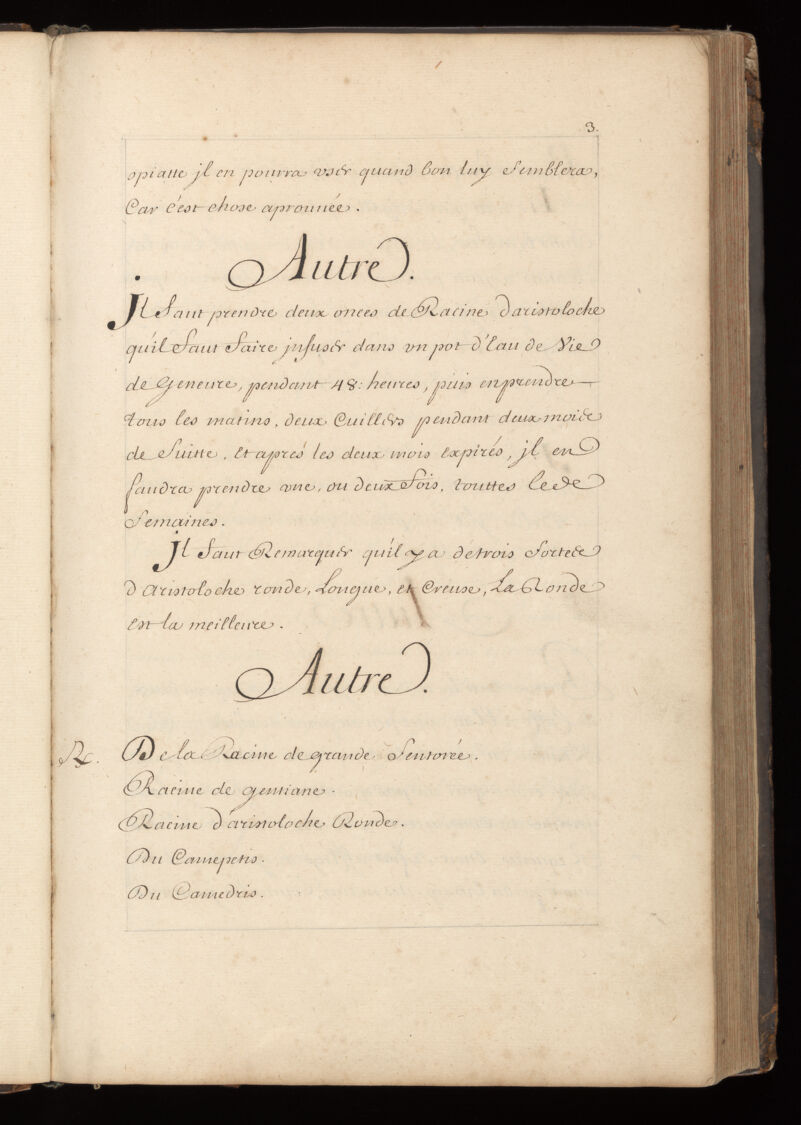 3.
opiatte jl en pourra vser quand bon luy Semblera,
Car c'est chose aprouuée.
Autre.
Jl Faut prendre deux onces de Racine d'aristoloche
qu'il Faut Faire jnfuser dans vn pot d'Eau de Vie
de Geneure, pendant 48: heures, puis en prendre
tous les matins, deux Cuillers pendant deux mois
de Suitte, Et aprés les deux mois Expirés, jl en
faudra prendre vne, ou deux Fois, touttes les
Semaines.
Jl Faut Remarquer qu'il y a de trois Sortes
d'Aristoloche ronde, Longue, et Creuse, La Ronde
Est la meilleure.
Autre.
Rx. De la Racine de grande Sentorée.
Racine de gentiane.
Racine d'aristoloche Ronde.
Du Camepetis.
Du Camedris.